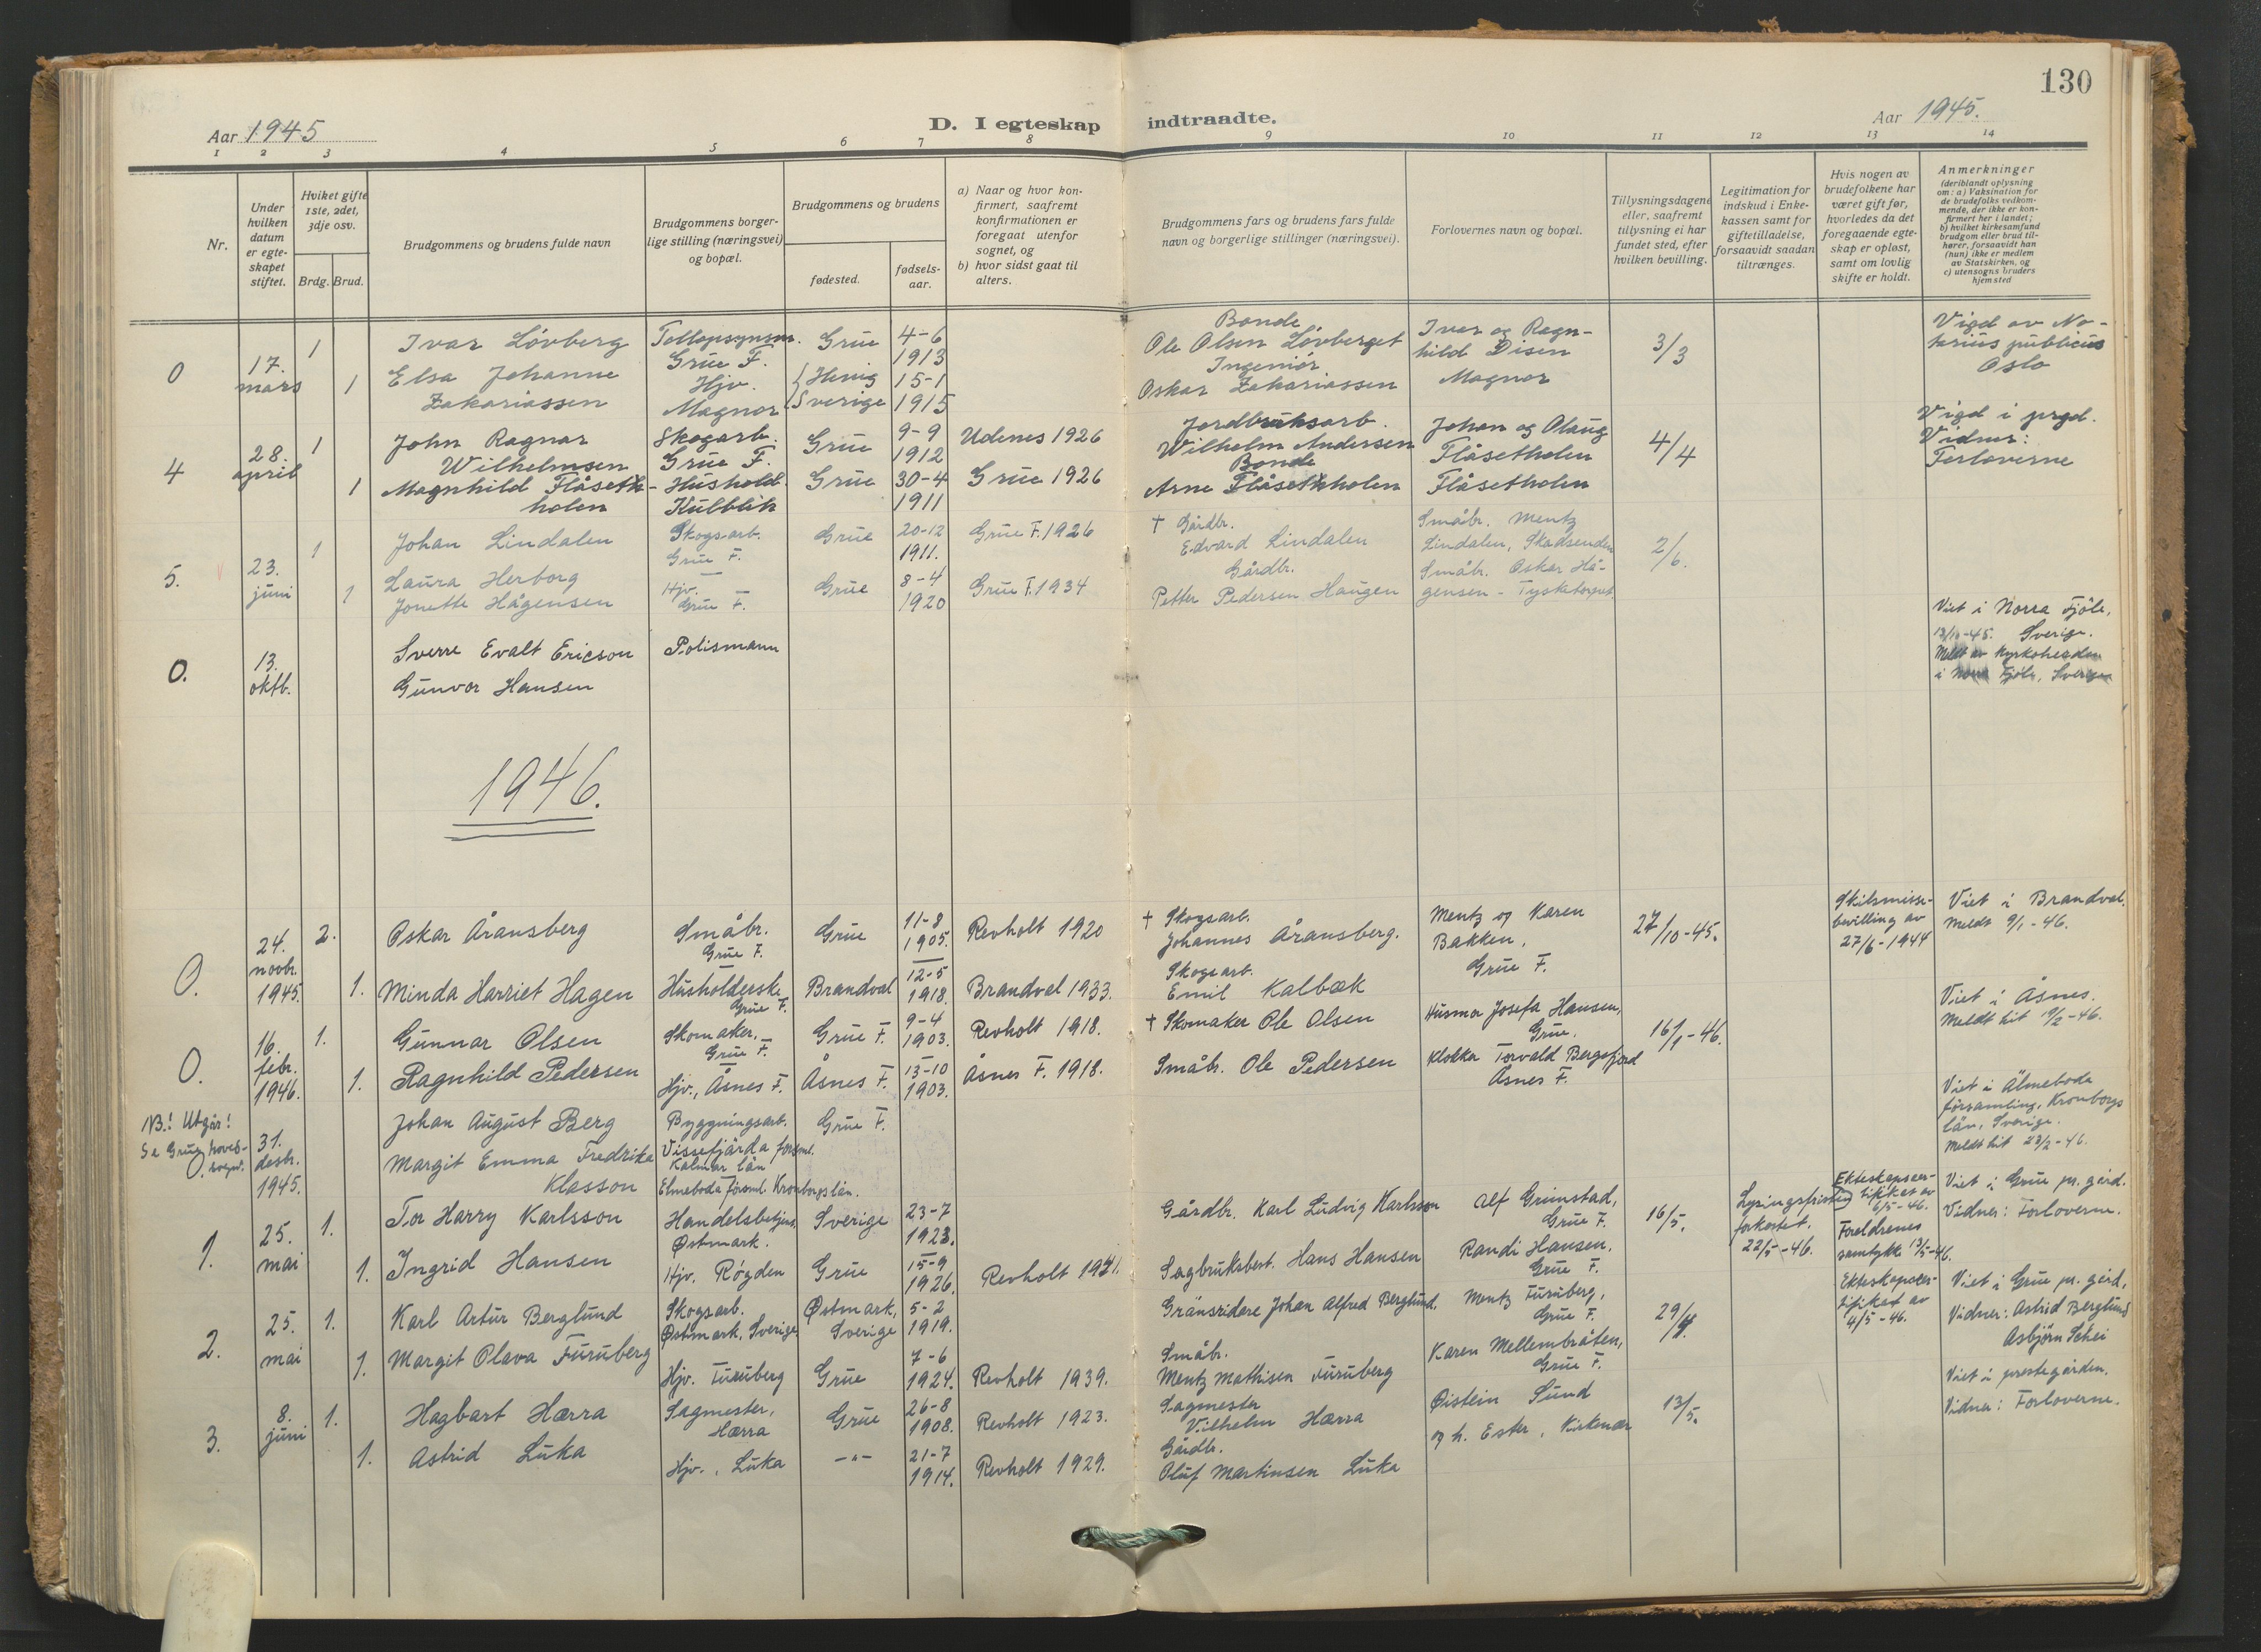 130
Aar 1945
D. I egteskap indtraadte.
Aar 1945.
1 2 3 4 5 6 7 8 9 10 11 12 13 14
Nr.
Under
hvilken
datum
er egte-
skapet
stiftet.
Hviket gifte
1ste, 2det,
3dje osv.
Brdg. Brud.
Brudgommens og brudens fulde navn
Brudgommens borger-
lige stilling (næringsvei)
og bopæl.
Brudgommens og brudens
fødested.
fødsels-
aar.
a) Naar og hvor kon-
firmert, saafremt
konfirmationen er
foregaat utenfor
sognet, og
b) hvor sidst gaat til
alters.
Brudgommens fars og brudens fars fulde
navn og borgerlige stillinger (næringsvei).
Forlovernes navn og bopæl.
Tillysningsdagene
eller, saafremt
tillysning ei har
fundet sted, efter
hvilken bevilling.
Legitimation for
indskud i Enke-
kassen samt for
giftetilladelse,
forsaavidt saadan
tiltrænges.
Hvis nogen av
brudefolkene har
været gift før,
hvorledes da det
foregaaende egte-
skap er opløst,
samt om lovlig
skifte er holdt.
Anmerkninger
(deriblandt oplysning
om: a) Vaksination for
de brudefolks vedkom-
mende, der ikke er kon-
firmert her i landet;
b) hvilket kirkesamfund
brudgom eller brud til-
hører, forsaavidt han
(hun) ikke er medlem
av Statskirken, og
c) utensogns bruders
hjemsted
0
17.
mars
1
1
Ivar Lövberg
Elsa Johanne
Zakariassen
Tollopsynsm.
Grue F.
Hjv.
Magnor
Grue
Sverige
4-6
1913
15-1
1915
Bonde
Ole Olsen Lövberget
Ingeniör
Oskar Zakariassen
Ivar og Ragn-
hild Disen
Magnor
3/3
Vigd av No-
tarius publicus
Oslo
4
28.
april
1
1
John Ragnar
Wilhelmsen
Magnhild Flåseth-
holen
Skogarb.
Grue F.
Hushold.
Kulblik
Grue
Grue
9-9
1912
30-4
1911
Udenes 1926
Grue 1926
Jordbruksarb.
Wilhelm Andersen
Bonde
Arne Flåsethholen
Johan og Olaug
Flåsetholen
Flåsetholen
4/4
Vigd i prgd.
Vidner:
Forloverne
5.
23.
juni
1
1
Johan Lindalen
Laura Herborg
Jonette Hågensen
Skogsarb.
Grue F.
Hjv.
Grue F.
Grue
Grue
20-12
1911.
8-4
1920
Grue F. 1926
Grue F. 1934
† Gårdbr.
Edvard Lindalen
Gårdbr.
Petter Pedersen Haugen
Småbr. Mentz
Lindalen, Skadsenden
Småbr. Oskar Hå-
gensen - Tysketorpet.
2/6.
0.
13.
oktb.
Sverre Evalt Ericson
Gunvor Hansen
Polismann
Viet i Norra Fjöle,
13/10-45. Sverige.
Meldt av Kyrkoherden
i Norra Fjöle, Sverige
1946.
0.
24.
novbr.
1945.
2.
1.
Oskar Åransberg
Minda Harriet Hagen
Småbr.
Grue F.
Husholderske
Grue F.
Grue
Brandval
11-8
1905.
12-5
1918.
Revholt 1920
Brandval 1933.
† Skogsarb.
Johannes Åransberg.
Skogsarb.
Emil Kalbæk
Mentz og Karen
Bakken,
Grue F.
27/10-45.
Skilsmisse-
bevilling av
27/6-1944
Viet i Brandval.
Meldt 9/1-46.
0.
16.
febr.
1946.
1.
1.
Gunnar Olsen
Ragnhild Pedersen
Skomaker,
Grue F.
Hjv., Åsnes F.
Grue F.
Åsnes F.
9-4
1903.
13-10
1903.
Revholt 1918.
Åsnes F. 1918.
† Skomaker Ole Olsen
Småbr. Ole Pedersen
Husmor Josefa Hansen,
Grue.
Klokker Torvald Bergsfjord
Åsnes F.
16/1-46.
Viet i Åsnes.
Meldt hit 19/2-46.
NB! Utgår!
Se Grue hoved-
sogn.
0.
31.
desbr.
1945.
Johan August Berg
Margit Emma Fredrika
Klasson
Byggningsarb.
Vissefjärda förs.
Kalmar län
Elmeboda församl. Kronborgs län.
Grue F.
Viet i Älmeboda
församling, Kronborgs
län, Sverige.
Meldt hit 23/2-46.
1.
25.
mai
1.
1.
Tor Harry Karlsson
Ingrid Hansen
Handelsbetjent
Østmark.
Hjv. Røgden
Sverige
Grue
23-7
1923.
15-9
1926.
Revholt 1941.
Gårdbr. Karl Ludvig Karlsson
Sagbruksbest. Hans Hansen
Alf Grimstad,
Grue F.
Randi Hansen,
Grue F.
16/5.
Lysningsfristen
forkortet.
22/5-46.
Ekteskapscer-
tifikat av
6/5-46.
Foreldrenes
samtykke 13/5-46.
Viet i Grue pr. gård.
Vidner: Forloverne.
2.
25.
mai
1.
1.
Karl Artur Berglund
Margit Olava Furuberg
Skogsarb.
Østmark, Sverige
Hjv. Furuberg
Østmark,
Sverige
Grue
5-2
1919.
7-6
1924.
Revholt 1939.
Gränsridare Johan Alfred Berglund.
Småbr.
Mentz Mathisen Furuberg
Mentz Furuberg,
Grue F.
Karen Mellembråten,
Grue F.
29/4.
Ekteskapscer-
tifikat av
4/5-46.
Viet i Grue pr. gård,
Vidner: Astrid Berglund
Asbjørn Schei
3.
8.
juni
1.
1.
Hagbart Hærra
Astrid Luka
Sagmester,
Hærra
Hjv., Luka
Grue
-"-
26-8
1908.
21-7
1914.
Revholt 1923.
Revholt 1929.
Sagmester
Vilhelm Hærra
Gårdbr.
Oluf Martinsen Luka
Øistein Sund
og h. Ester, Kirkenær
13/5.
Viet i prestegården.
Vidner: Forloverne.